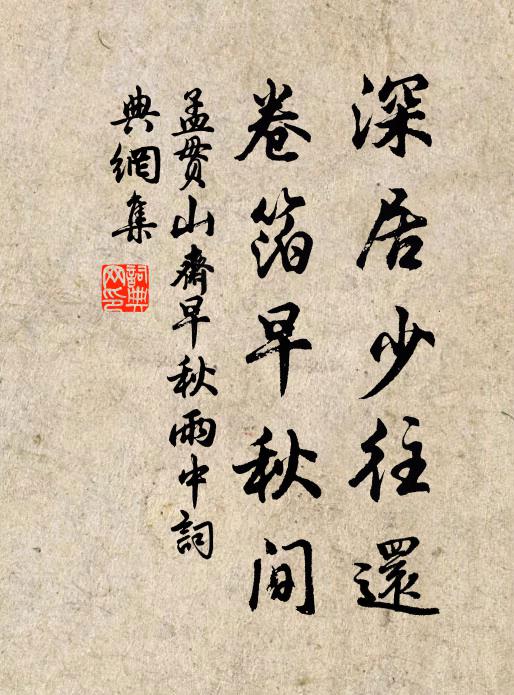 深居少往還
卷箔早秋間
孟貫山齋早秋雨中詞
典網集
詞典
網印